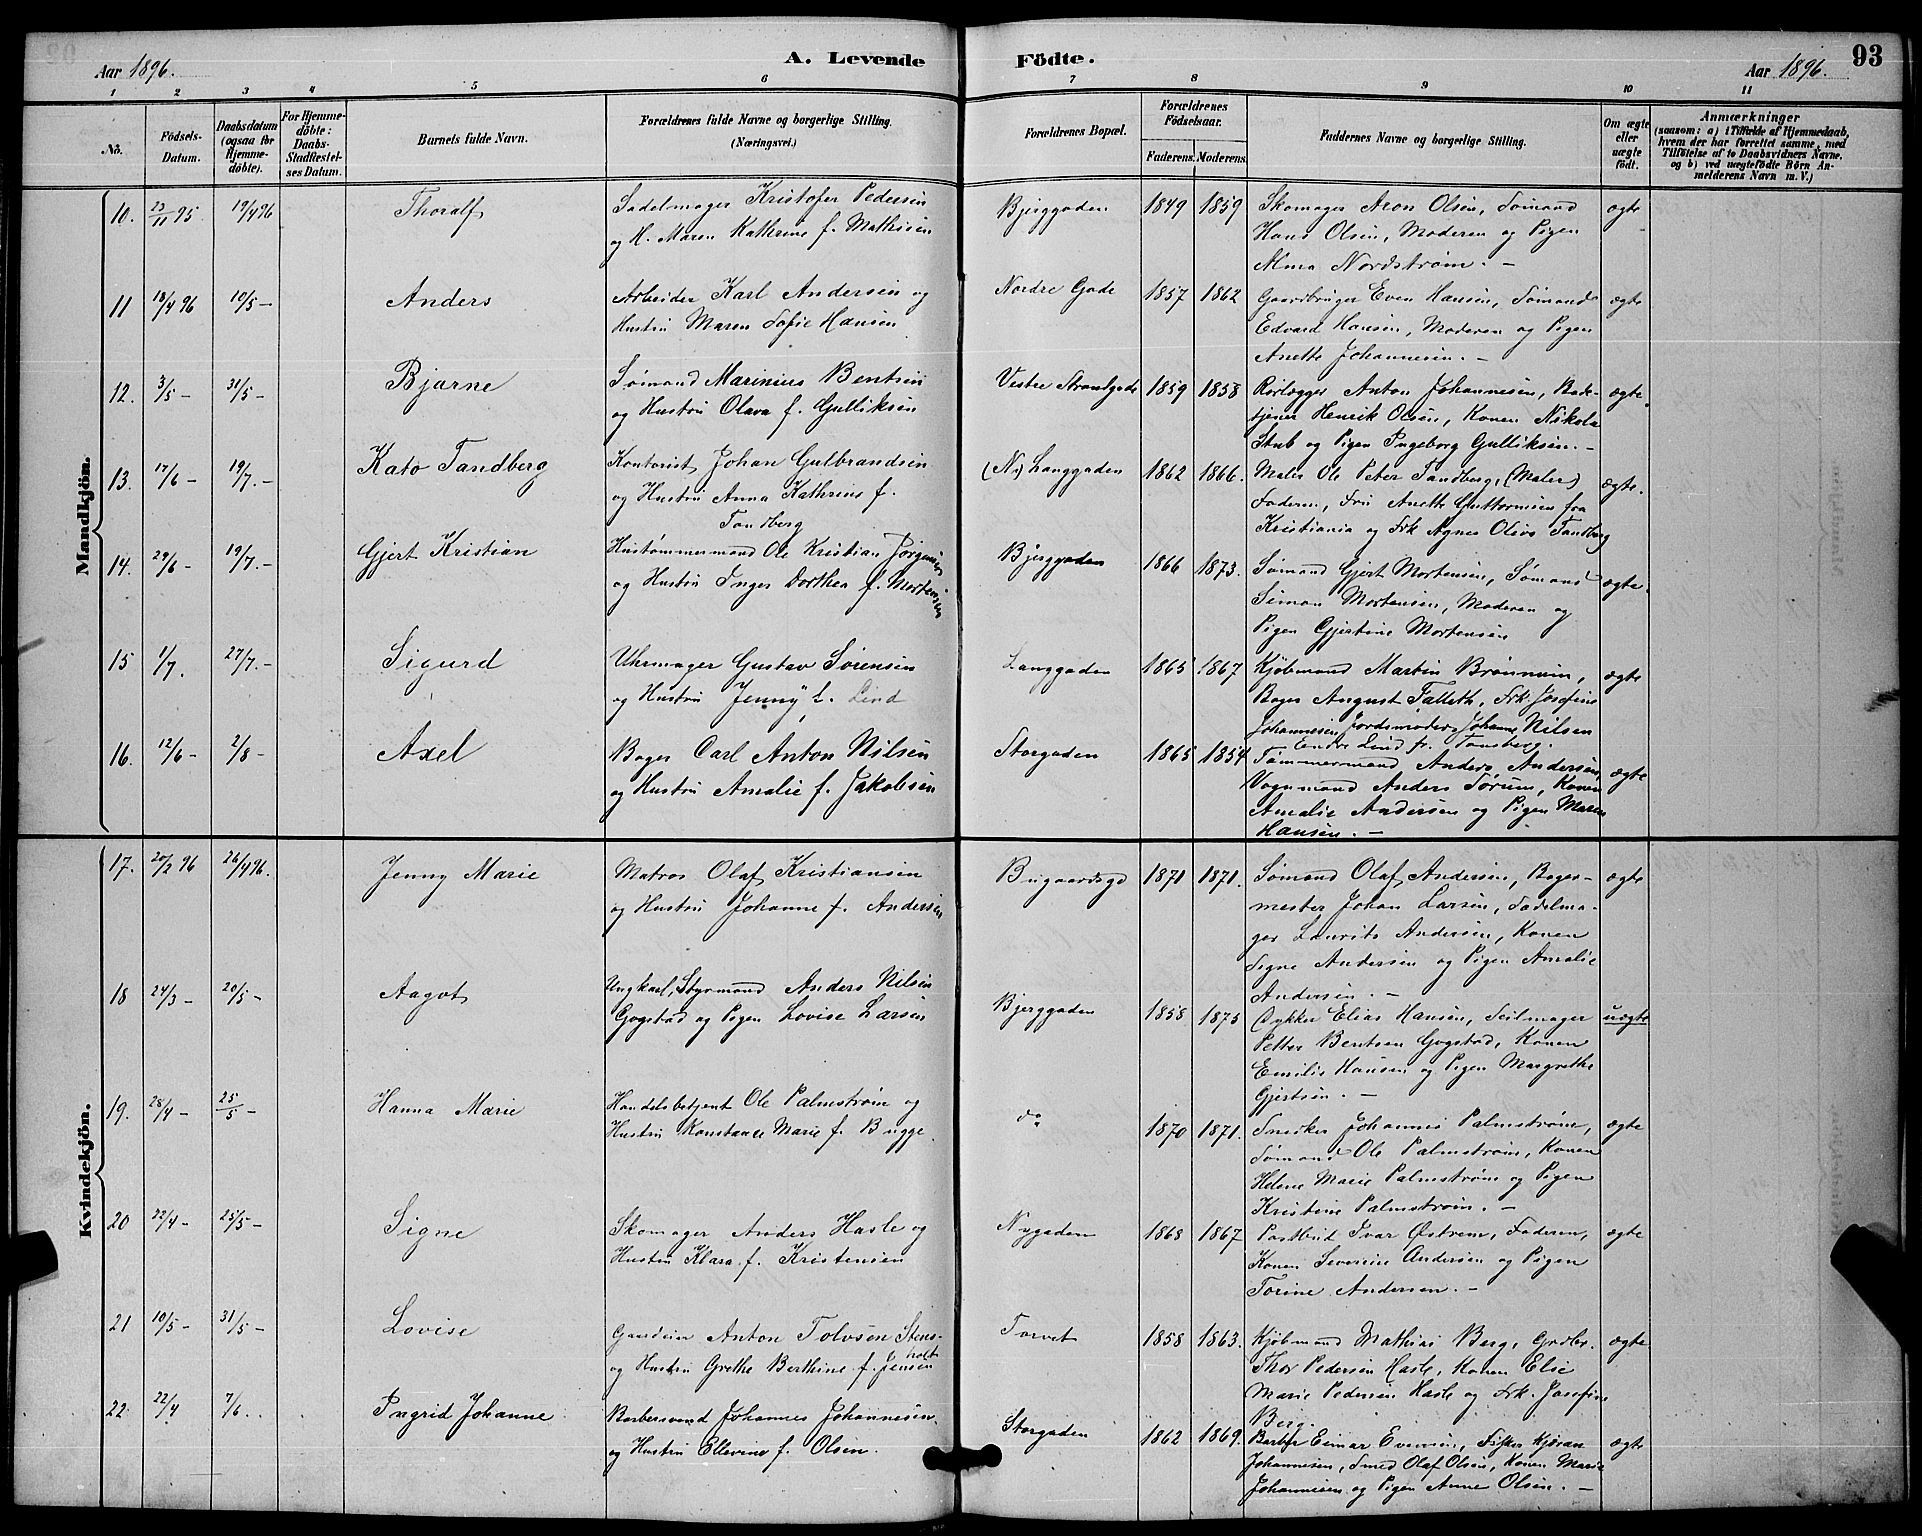 Aar 1896.
A. Levende
Födte.
Aar 1896.
93
1 2 3 4 5 6 7 8 9 10 11
No.
Födsels-Datum.
Daabsdatum (ogsaa for Hjemme-döbte).
For Hjemme-döbte: Daabs-Stadfæstel-ses Datum.
Barnets fulde Navn.
Forældrenes fulde Navne og borgerlige Stilling.
(Næringsvei.)
Forældrenes Bopæl.
Forældrenes Födselsaar.
Faderens. Moderens.
Faddernes Navne og borgerlige Stilling.
Om ægte eller uægte födt.
Anmærkninger
(saasom: a) i Tilfælde af Hjemmedaab,
hvem der har forrettet samme, med
Tilföielse af to Daabsvidners Navne,
og b) ved uægtefödte Börn An-
melderens Navn m. V.)
Mandkjön.
10. 23/11 95. 19/4 96 Thoralf
Sadelmager Kristofer Pedersen
og H. Maren Kathrine f. Mathisen
Bjerggaden 1849 1859
Skomager Aron Olsen, Sømand
Hans Olsen, Moderen og Pigen
Alma Nordstrøm. —
ægte
11 18/4 96 10/5 — Anders
Arbeider Karl Andersen og
Hustru Maren Sofie Hansen
Nordre Gade 1857 1862
Gaardbruger Even Hansen, Sømand
Edvard Hansen, Moderen og Pigen
Anette Johannesen. —
ægte
12. 3/5 — 31/5 — Bjarne
Sømand Marinius Bentsen
og Hustru Olava f. Gulliksen
Vestre Strandgade 1859 1858
Rørlægger Anton Johannesen, Bade-
tjener Henrik Olsen, Konen Nikola
Stub og Pigen Ingeborg Gulliksen. —
ægte.
13. 17/6 — 19/7. — Kato Tandberg
Kontorist Johan Gulbrandsen
og Hustru Anna Kathrine f.
Tandberg
(N.) Langgaden 1862 1866.
Maler Ole Peter Tandberg, (Maler)
Faderen, Fru Anette Guttormsen fra
Kristiania og Frk Agnes Oliva Tandberg
ægte.
14. 29/6 — 19/7. — Gjert Kristian
Hustømmermand Ole Kristian Jørgensen
og Hustru Inger Dorthea f. Mortensen
Bjerggaden 1866 1873.
Sømand Gjert Mortensen, Sømand
Simon Mortensen, Moderen og
Pigen Gjertine Mortensen
ægte.
15 1/7. 27/7. — Sigurd
Uhrmager Gustav Sørensen
og Hustru Jenny f. Lind
Langgaden 1865 1867
Kjøbmand Martin Brønnum,
Bager August Falleth, Frk Josefine
Johannesen, Jordemoder Johanne Nilsen
Endre Lind fr. Tønsberg.
ægte
16. 12/6 — 2/8 — Axel
Bager Carl Anton Nilsen
og Hustru Amalie f. Jakobsen
Storgaden 1865 1854
Tømmermand Anders Andersen,
Vognmand Anders Sørum, Konen
Amalie Andersen og Pigen Maren
Hansen. —
ægte
Kvindekjön.
17. 20/2 96 26/4 96. Jenny Marie
Matros Olaf Kristiansen
og Hustru Johanne f. Andersen
Bugaardsgd 1871 1871.
Sømand Olaf Andersen, Bager-
mester Johan Larsen, Sadelma-
ger Laurits Andersen, Konen
Signe Andersen og Pigen Amalie
Andersen. —
ægte
18 24/3 — 20/5 — Aagot
Ungkarl, Styrmand Anders Nilsen
Gogstad og Pigen Lovise Larsen
Bjerggaden 1858 1875
Dykker Elias Hansen, Seilmager
Petter Bentsen Gogstad, Konen
Emilie Hansen og Pigen Margrethe
Gjertsen. —
uægte
19. 28/4 — 25/5 — Hanna Marie
Handelsbetjent Ole Palmstrøm og
Hustru Konstance Marie f. Bugge.
do 1870 1871.
Snedker Johannes Palmstrøm,
Sømand Ole Palmstrøm, Konen
Helene Marie Palmstrøm og Pigen
Kristine Palmstrøm. —
ægte
20 22/4 — 25/5 — Signe
Skomager Anders Hasle og
Hustru Klara f. Kristensen
Nygaden 1868 1867
Postbud Ivar Østrem, Faderen,
Konen Severine Andersen og Pigen
Torine Andersen. —
ægte
21 10/5 — 31/5 — Lovise
Gaardeier Anton Tolvsen Stens-
holt
og Hustru Grethe Berthine f. Jensen
Torvet 1858 1863.
Kjøbmand Mathias Berg, Grdbr.
Thor Pedersen Hasle, Konen Else
Marie Pedersen Hasle og Frk. Josefine
Berg.
ægte
22. 22/4 7/6. Ingrid Johanne
Barbersvend Johannes Johannesen
og Hustru Ellevine f. Olsen.
Storgaden 1862 1869.
Barber Eimar Evensen, Fisker Kjøran
Johannesen, Smed Olaf Olsen, Konen Marie
Johannesen og Pigen Anne Olsen. —
ægte